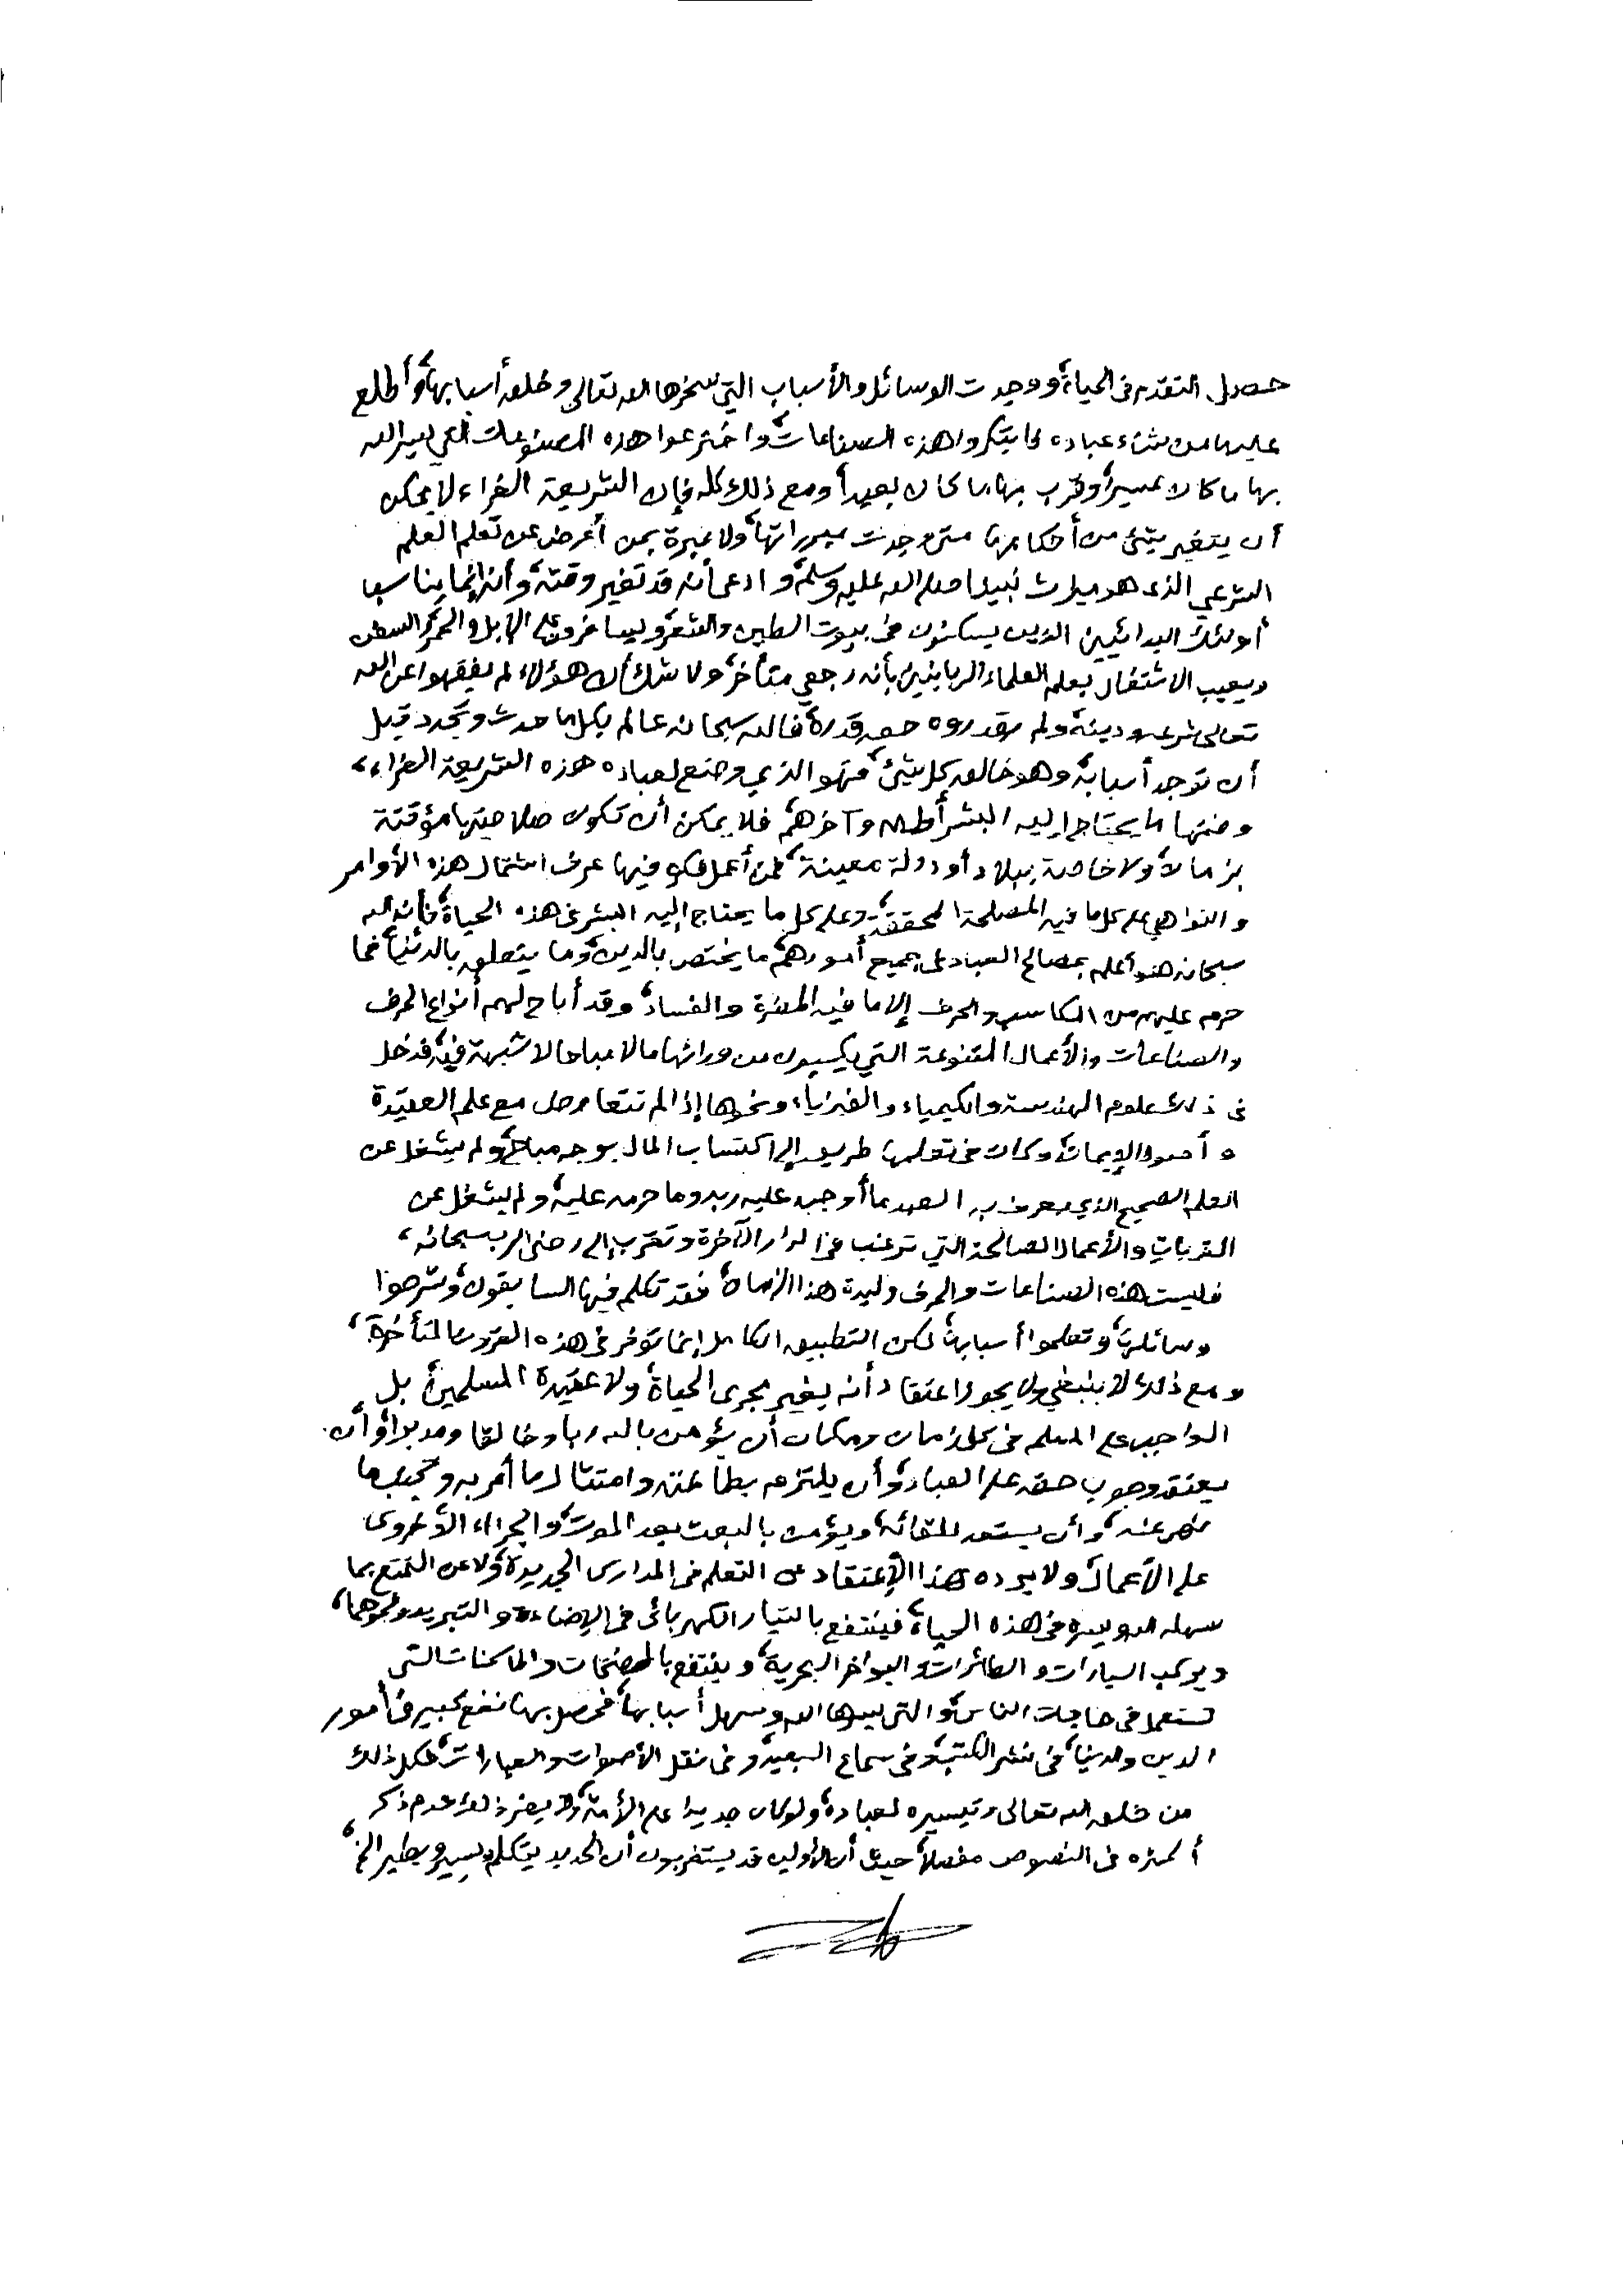 حصل التقدم في الحياة، ووجدت الوسائل والأسباب التي سخرها الله تعالى وخلق أسبابها، وأطلع
عليها من شاء عباده فابتكروا هذه الصناعات، واخترعوا هذه المصنوعات التي يسر الله
بها ما كان عسيراً، وقرب بها ما كان بعيداً ومع ذلك كله فإن الشريعة الغراء لا يمكن
أن يتغير شيئ من أحكامها متى وجدت مبرراتها، ولا عبرة بمن أعرض عن تعلم العلم
الشرعي الذي هو ميراث نبينا صلى الله عليه وسلم، وادعى أنه قد تغير وقته، وأنه إنما يناسب
أولئك البدائيين الذين يسكنون في بيوت الطين والشعر، ويسافرون على الإبل والحمر السفن
ويعيب الاشتغال بعلم العلماء الربانيين بأنه رجعي متأخر، ولا شك أن هؤلاء لم يفقهوا عن الله
تعالى شرعه ودينه، ولم يقدروه حق قدره، فالله سبحانه عالم بكل ما حدث وتجدد قبل
أن توجد أسبابه، وهو خالق كل شيئ، فهو الذي وضع لعباده هذه الشريعة الغراء،
وضمنها ما يحتاج إليه البشر أولهم وآخرهم، فلا يمكن أن تكون صلاحيتها مؤقتة
بزمان، ولا خاصة ببلاد أو دولة معينة، فمن أعمل فكره فيها عرف اشتمال هذه الأوامر
والنواهي على كل ما فيه المصلحة المحققة، وعلى كل ما يحتاج إليه البشر في هذه الحياة، فإن الله
سبحانه هو أعلم بمصالح العباد في جميع أمورهم، ما يختص بالدين، وما يتعلق بالدنيا، فما
حرم عليهم من المكاسب والحرف إلا ما فيه المضرة والفساد، وقد أباح لهم أنواع الحرف
والصناعات والأعمال المتنوعة التي يكسبون من ورائها مالا مباحا لا شبهة فيه، فدخل
في ذلك علوم الهندسة والكيمياء والفيزياء ونحوها إذا لم تتعارض مع علم العقيدة
وأصول الإيمان، وكان في تعلمها طريق إلى اكتساب المال بوجه مباح، ولم يشغل عن
العلم الصحيح الذي يعرف به العبد ما أوجبه عليه ربه وما حرمه عليه، ولم يشغل عن
القربات والأعمال الصالحة التي ترغب في الدار الآخرة وتقرب إلى رضى الرب سبحانه،
فليست هذه الصناعات والحرف وليدة هذا الزمان، فقد تكلم فيها السابقون، وشرحوا
وسائلها، وتعلموا أسبابها، لكن التطبيق الكامل إنما توفر في هذه القرون المتأخرة،
ومع ذلك لا ينبغي ولا يجوز اعتقاد أنه يغير مجرى الحياة، ولا عقيدة المسلمين، بل
الواجب على المسلم في كل زمان ومكان أن يؤمن بالله ربا وخالقا ومدبرا، وأن
يعتقد وجوب حقه على العباد، وأن يلتزم بطاعته وامتثال ما أمر به وتجنب ما
نهى عنه، وأن يستعد للقائه، ويؤمن بالبعث بعد الموت، والجزاء الأخروي
على الأعمال، ولا يرده هذا الإعتقاد عن التعلم في المدارس الجديدة، ولا عن التمتع بما
سهله الله ويسره في هذه الحياة، فينتفع بالتيار الكهربائي في الإضاءة والتبريد ونحوهما،
ويركب السيارات والطائرات والبواخر البحرية، وينتفع بالمضخات والماكنات التي
تستعمل في حاجات الناس، والتي يسرها الله وسهل أسبابها، فحصل بها نفع كبير في أمور
الدين والدنيا، في نشر الكتب، وفي سماع البعيد، وفي نقل الأصوات والعبارات، فكل ذلك
من خلق الله تعالى وتيسيره لعباده، ولو كان جديدا على الأمة، ولا يضر ذلك عدم ذكر
أكثره في النصوص مفصلاً، حيث أن الأولين قد يستغربون أن الحديد يتكلم ويسير ويطير الخ،